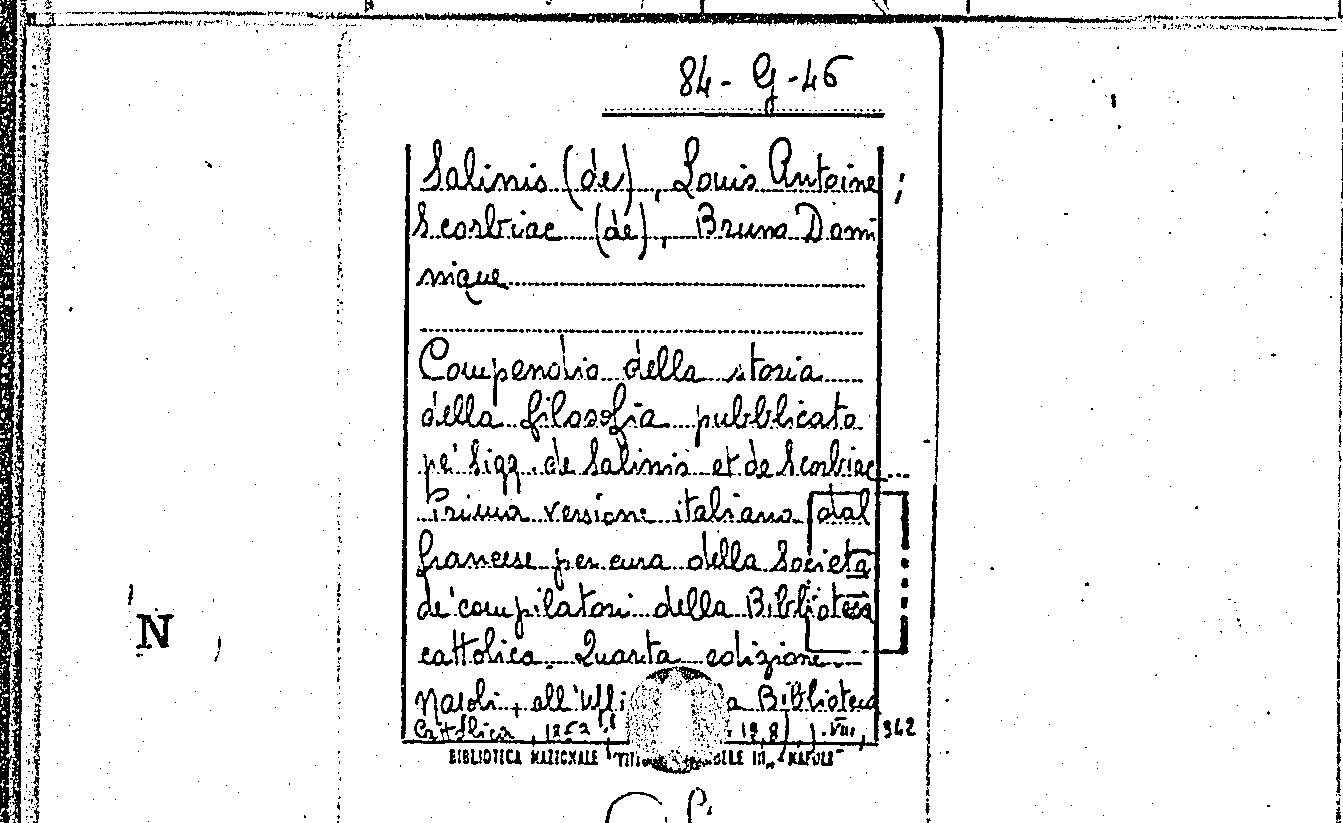 84-G-46
Salinis (de), Louis Antoine;
Scorbiac (de), Bruno Domi
nique
Compendio della storia
della filosofia pubblicato
pe' Sigg. de Salinis et de Scorbiac...
Prima versione italiana dal
francese per cura della Società
de' compilatori della Biblioteca
cattolica. Quarta edizione
Napoli, all'Uffi a Biblioteca
Cattolica, VIII, 362
N
BIBLIOTECA NAZIONALE "VITT ELE III„ - NAPOLI